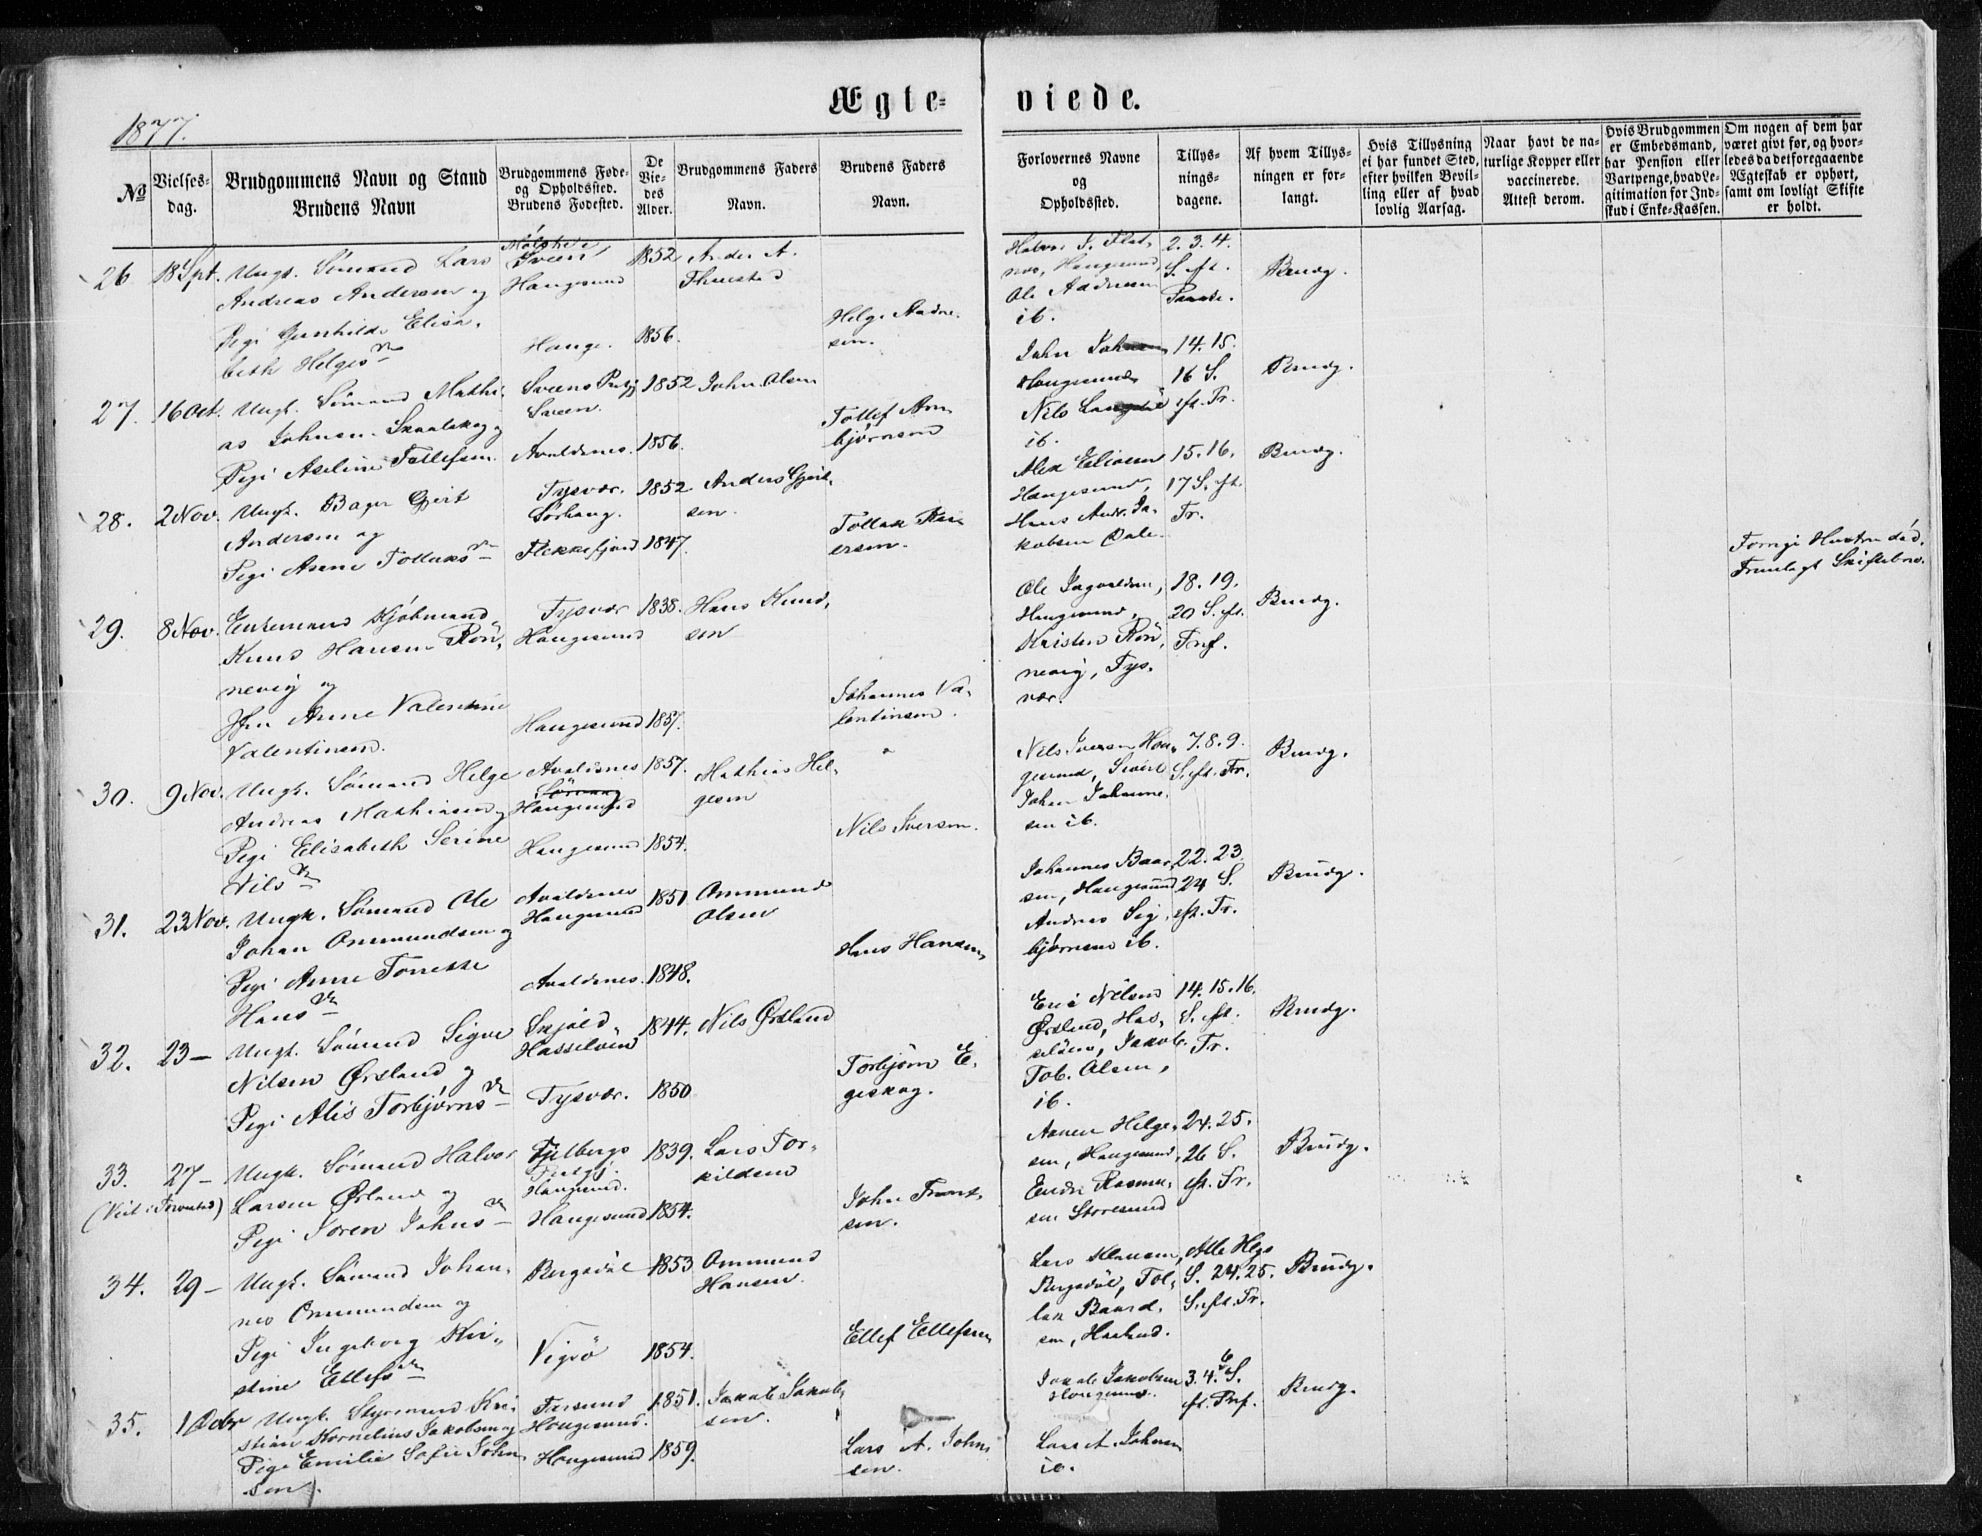 Ægte= viede.
1877.
No
Vielses-
dag.
Brudgommens Navn og Stand
Brudens Navn
Brudgommens Føde-
og Opholdssted.
Brudens Fødested.
De
Vie-
des
Alder.
Brudgommens Faders
Navn.
Brudens Faders
Navn.
Forlovernes Navne
og
Opholdssted.
Tillys-
nings-
dagene.
Af hvem Tillys-
ningen er for-
langt.
Hvis Tillysning
ei har fundet Sted,
efter hvilken Bevil-
ling eller af hvad
lovlig Aarsag.
Naar havt de na-
turlige Kopper eller
vaccinerede.
Attest derom.
Hvis Brudgommen
er Embedsmand,
har Pension eller
Vartpenge, hvad Le-
gitimation for Ind-
skud i Enke-Kassen.
Om nogen af dem har
været gift før, og hvor-
ledes da det foregaaende
Ægteskab er ophørt,
samt om lovligt Skifte
er holdt.
26 18 Spt. Ungk. Sømand Lars
Andreas Andersen og
Pigi Gunhilde Elisa-
beth Helgesdr
Sveen,
Haugesund
Hauge.
1852
1856.
Anders A.
Helge Andre-
sen.
Haugesund,
ib.
2. 3. 4.
S. eft.
Brudg.
27. 16 Oct. Ungk. Sømand Mathi-
as Johnsen Skaaleskog og
Pigi Aseline Tollefsen
Sveens Pretgj
Sveen.
Avaldsnes.
1852
1856.
John Olsen
Tollef Arn-
bjørnsen
John
Haugesund
Nils
ib.
14. 15.
16 S.
eft. Tr.
Brudg.
28. 2 Nov. Ungk. Bager Gjert
Andersen og
Pigi Asene Tollaksdr
Tysvær.
Sørhaug.
Flekkefjord
1852
1847.
Anders Gjert-
sen.
Tollak
ersen.
Alex Eliasen
Haugesund,
Hans Andr. Ja-
kobsen Dale.
15. 16.
17 S. eft.
Tr.
Brudg.
29. 8 Nov. Enkemand Kjøbmand
Knud Hansen Røn-
nevig og
Jfr Anne Valentine
Valentinsen.
Tysvær
Haugesund
Haugesund
1838.
1857.
Hans Knud-
sen
Johannes Va-
lentinsen.
Ole Ingvaldsen,
Haugesund,
Kristen Røn-
nevig, Tys-
vær.
18. 19.
20 S. eft.
Tref.
Brudg.
Forrige Hustru død.
Fremlagt Skiftebrev.
30. 9 Nov. Ungk. Sømand Helge
Andreas Mathiasen og
Pigi Elisabeth Serine
Nilsdr
Avaldsnes
Sørhaug
Haugesund
Haugesund
1857.
1854.
Mathias Hel-
gesen
Nils Iversen.
Nils Iversen Hau-
gesund, Sivert
Johan Johanne-
sen ib.
7. 8. 9.
S. eft. Tr.
Brudg.
31. 23 Nov. Ungk. Sømand Ole
Johan Ommundsen og
Pigi Anne Torette
Hansdr
Avaldsnes
Haugesund
Avaldsnes.
1851
1848.
Ommund
Olsen
Hans Hansen
Johannes Baar-
sen, Haugesund
Andreas Sig-
bjørnsen ib.
22. 23.
24 S.
eft. Tr.
Brudg.
32. 23 — Ungk. Sømand Sigve
Nilsen Ørsland og
Pigi Alis Torbjørnsdr
Skjold
Hasseløen
Tysvær.
1844.
1850
Nils Ørsland
Torbjørn E-
geskog.
Eric Nilsen
Ørsland, Has-
seløen, Jakob
Tob. Olsen,
ib.
14. 15. 16.
S. eft.
Tr.
Brudg.
33. 27 —
(Viet i )
Ungk. Sømand Halvor
Larsen Ørland og
Pigi Soren Johnsdr
Haugesund.
Haugesund
1839.
1854.
Lars Tor-
kildsen
John
sen.
Helge-
sen, Haugesund,
Endre Rasmus-
sen Storesund
24. 25.
26 S.
eft. Tr.
Brudg.
34. 29 — Ungk. Sømand Johan-
nes Ommundsen og
Pigi Ingeborg Kri-
stine Ellefsdr
Bergsdøl
Vigsø
1853
1854.
Ommund
Hansen.
Ellef Ellefsen
Lars
Bergsdøl, Tol-
lak Baard-
sen,
Alle Helg
S. 24. 25.
S. eft. Tr.
Brudg.
35. 1 Debr Ungk. Styrmand Kri-
stian Kornelius Jakobsen og
Pige Emilie Sofie John-
sen
Farsund
Haugesund.
Haugesund
1851.
1859.
Jakob Jakob-
sen.
Lars A. John-
sen.
Jakob Jakobsen
Haugesund.
Lars A. Johnsen
ib.
3. 4. 6 S.
ft. Tref.
Brudg.